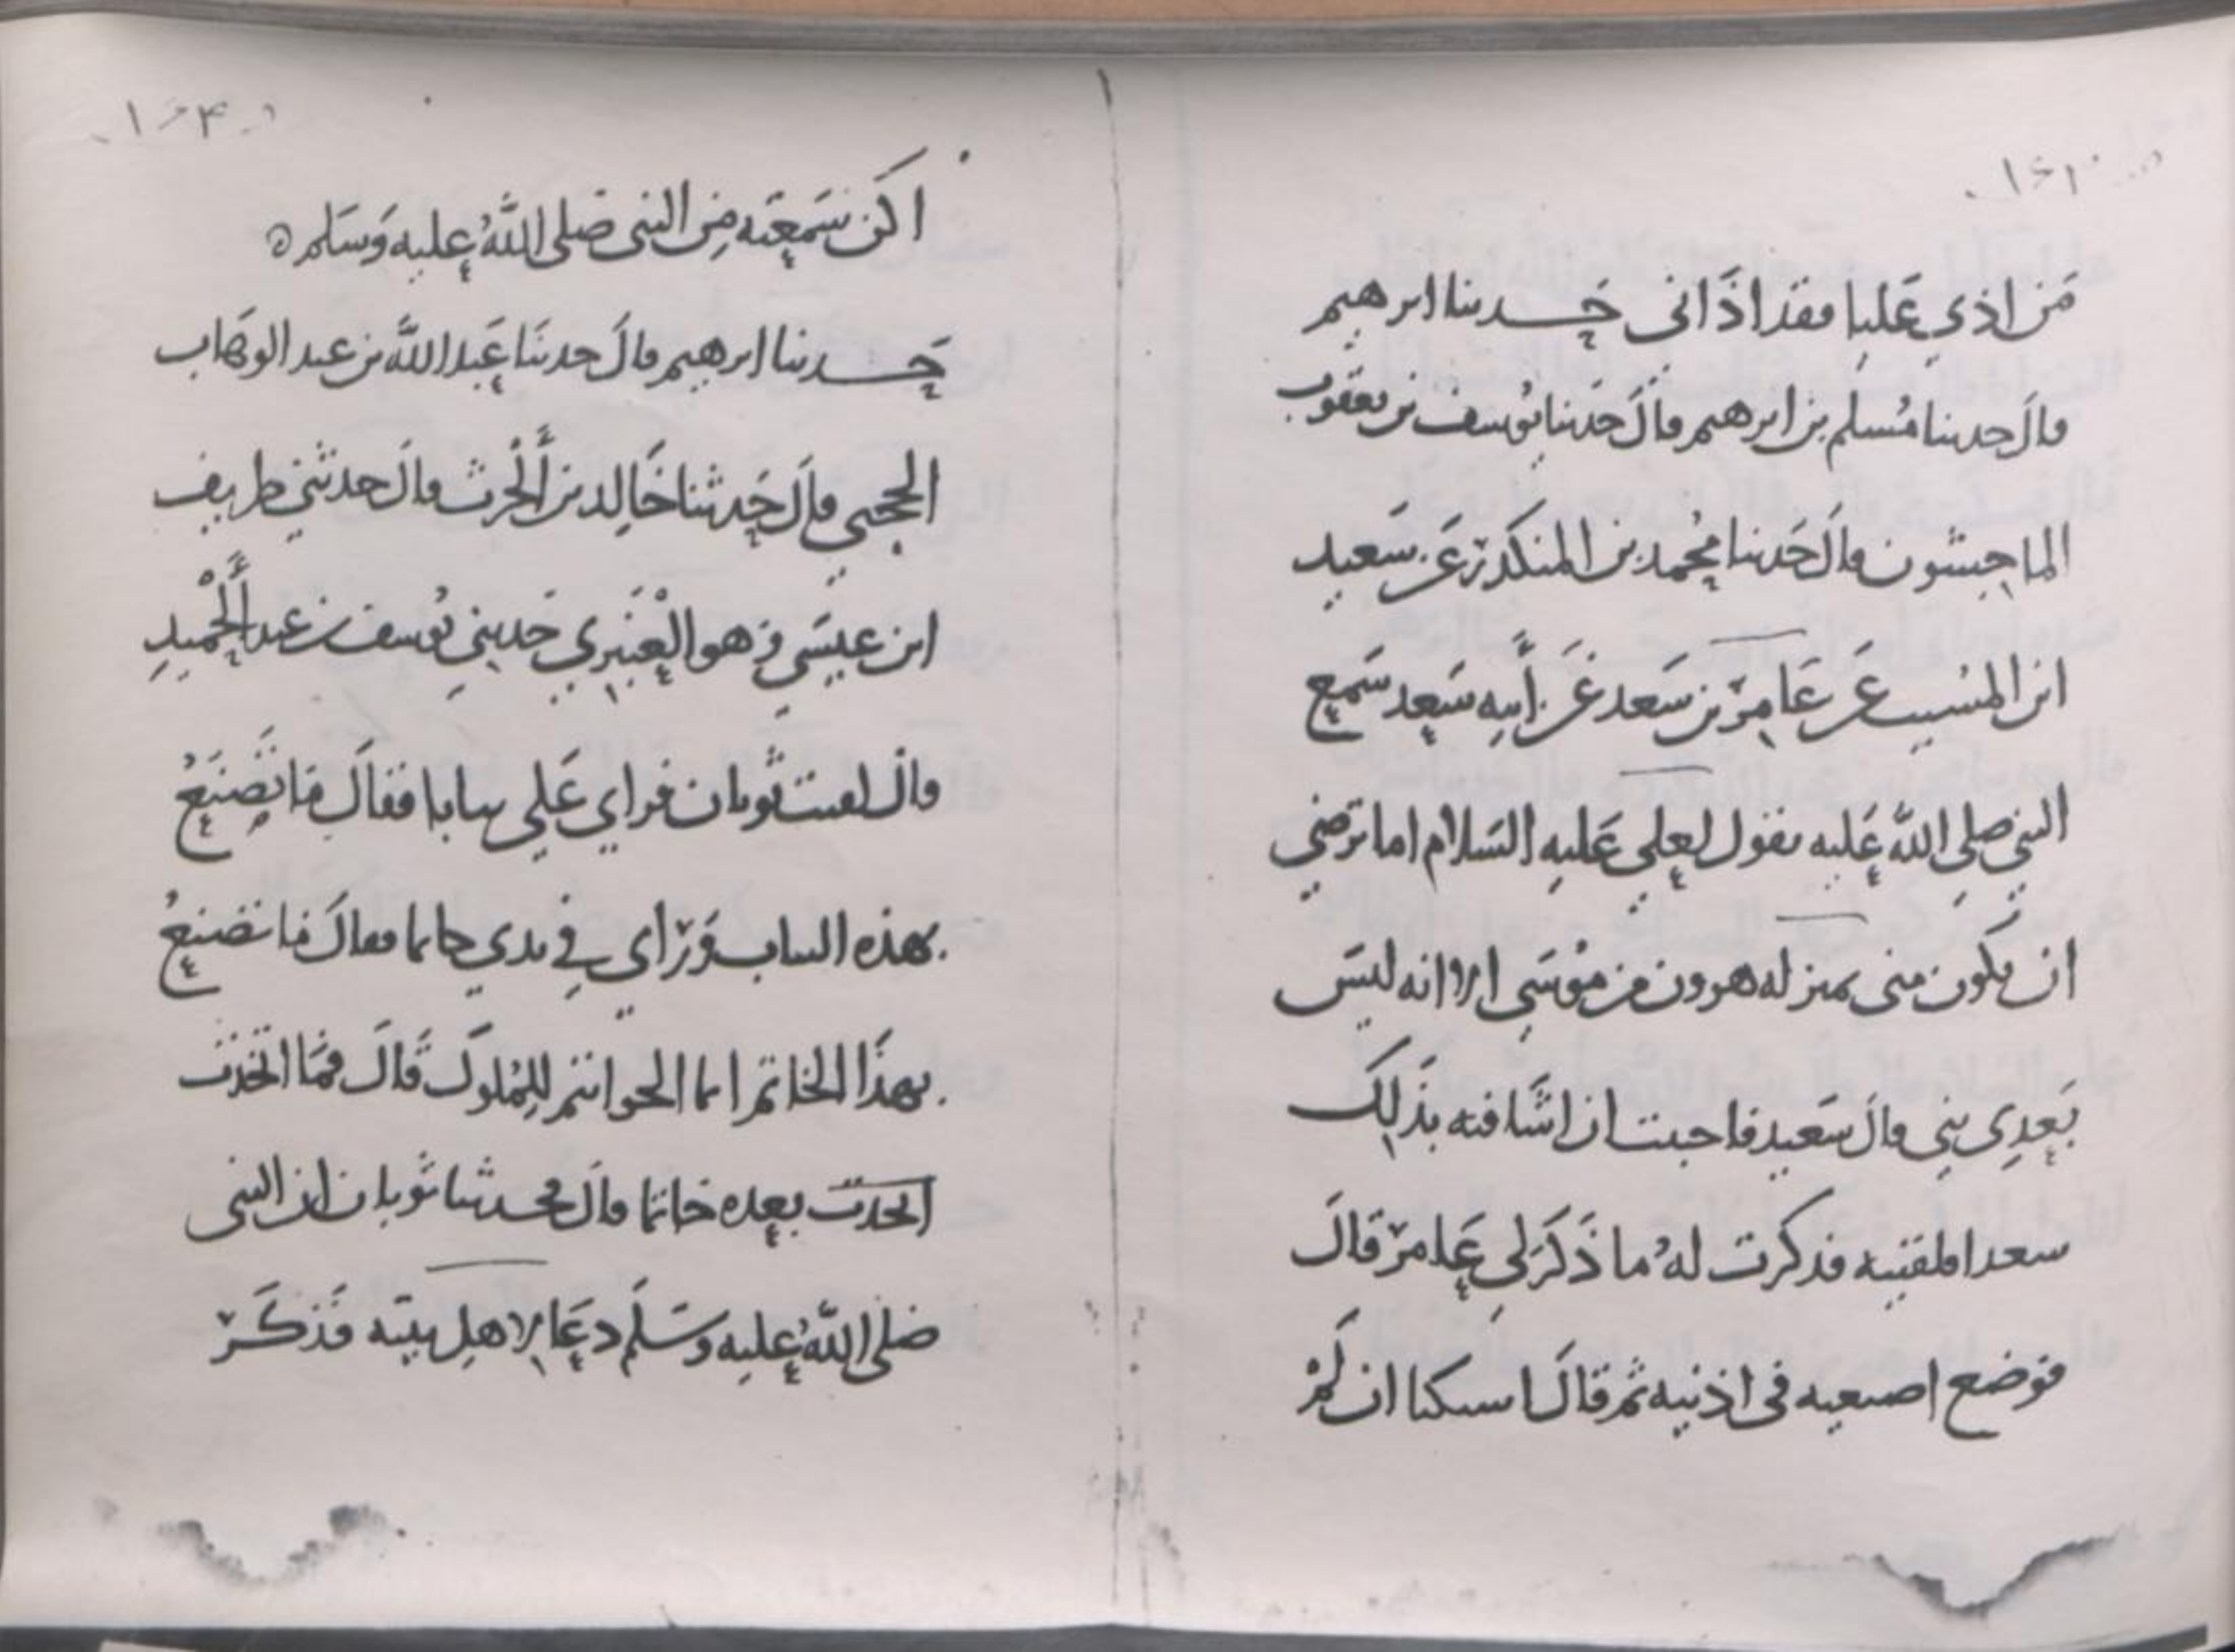 من اذي عليا فقد اذاني حدثنا ابرهيم
قال حدثنا مسلم بن ابرهيم قال حدثنا يوسف بن يعقوب
الماجشون قال حدثنا محمد بن المنكدر عن سعيد
ابن المسيب عن عامر بن سعد عن أبيه سعد سمع
النبي صلى الله عليه يقول لعلي عليه السلام اما ترضي
ان تكون مني بمنزله هرون من موسى الا انه ليس
بعدي نبي قال سعيد فاحببت ان اشافه بذلك
سعدا فلقيته فذكرت له ما ذكر لي عامر قال
فوضع اصبعيه في اذنيه ثم قال اسكتا ان لم
اكن سمعته من النبي صلى الله عليه وسلم ه
حدثنا ابرهيم قال حدثنا عبد الله بن عبد الوهاب
الحجبي قال حدثنا خالد بن ألحرث قال حدثني طريف
ابن عيسي وهو العنبري حديني يوسف بن عبد ألحميد
قال لقيت ثوبان فراي علي ثيابا فقال ما تصنع
بهذه الثياب وراي في يدي خاتما فقال ما تصنع
بهذا الخاتم انما الخواتم للملوك قال فما اتخذت
اتخذت بعده خاتما قال فحدثنا ثوبان ان النبي
صلى الله عليه وسلم دعا لاهل بيته فذكر